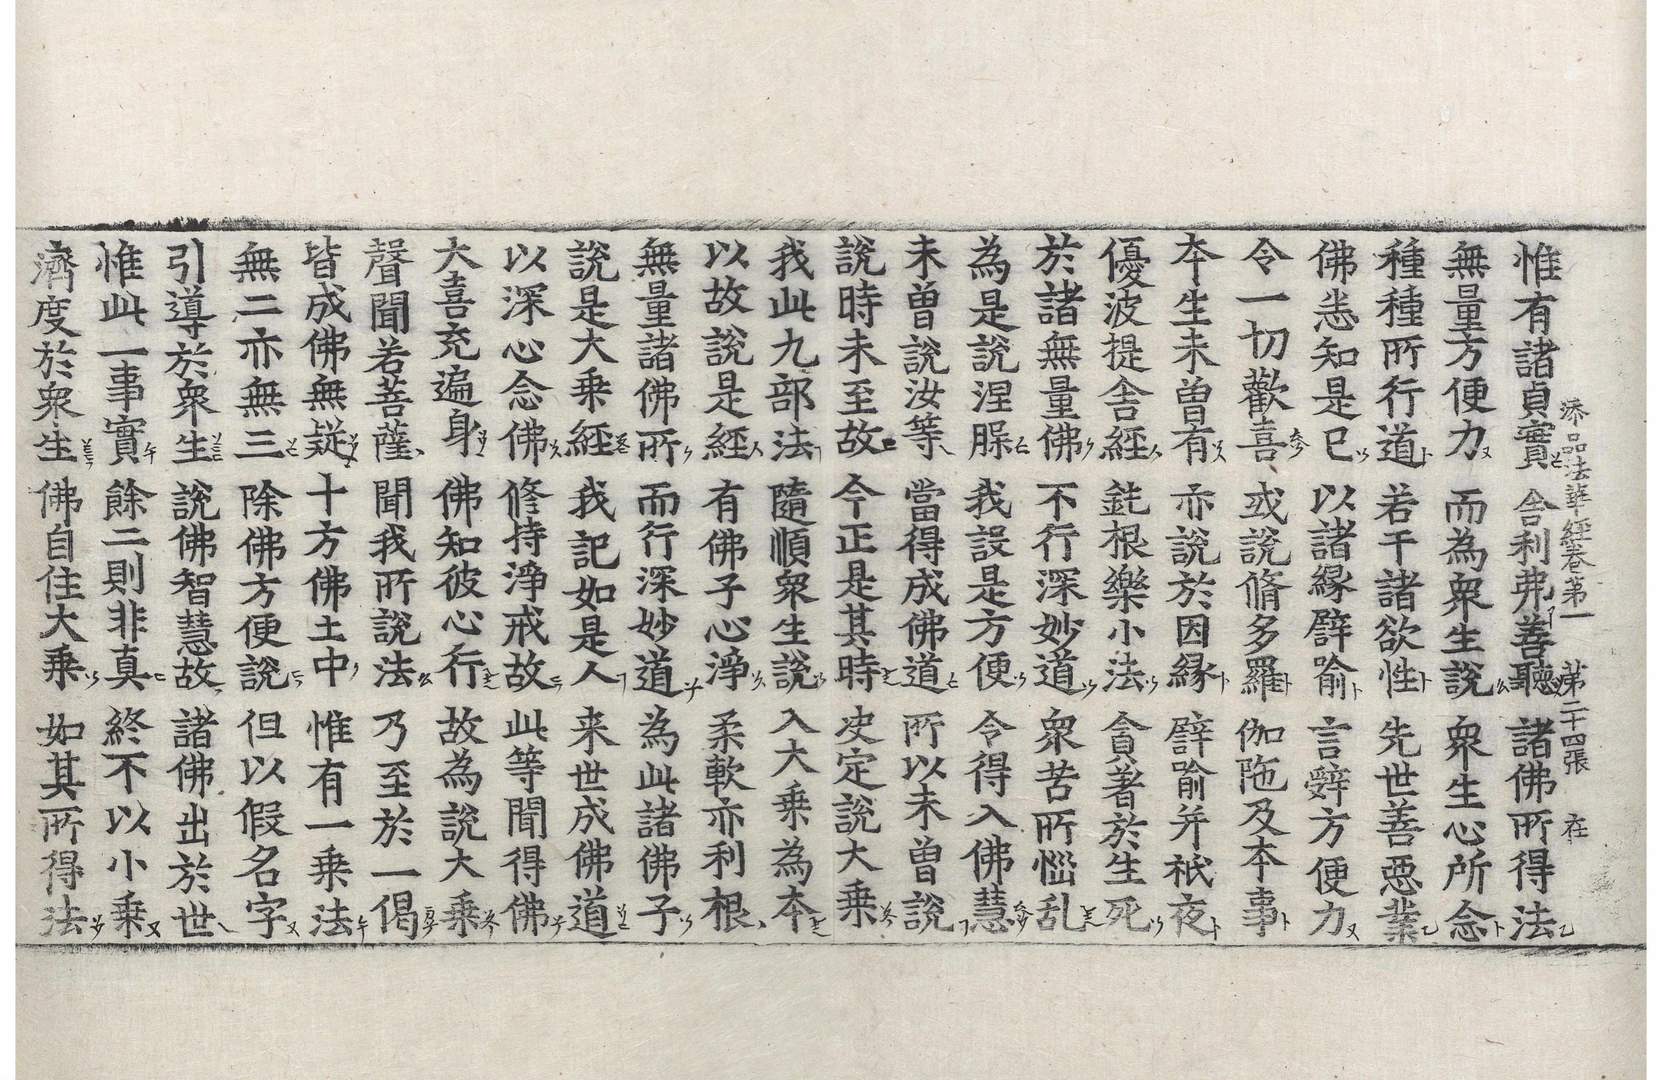 添品法華經卷第一 第二十四張 在
惟有諸貞實 舍利弗善聽 諸佛所得法
無量方便力 而為衆生說 衆生心所念
種種所行道 若干諸欲性 先世善惡業
佛悉知是已 以諸緣譬喻 言辝方便力
令一切歡喜 或說脩多羅 伽陁及本事
本生未曽有 亦說於因緣 譬喻并祇夜
優波提舍經 鈍根樂小法 貪著於生死
於諸無量佛 不行深妙道 衆苦所惱乱
為是說涅槃 我設是方便 令得入佛慧
未曽說汝等 當得成佛道 所以未曽說
說時未至故 今正是其時 决定說大乗
我此九部法 隨順衆生說 入大乗為本
以故說是經 有佛子心淨 柔軟亦利根
無量諸佛所 而行深妙道 為此諸佛子
說是大乗經 我記如是人 来世成佛道
以深心念佛 修持淨戒故 此等聞得佛
大喜充遍身 佛知彼心行 故為說大乗
聲聞若菩薩 聞我所說法 乃至於一偈
皆成佛無疑 十方佛土中 惟有一乗法
無二亦無三 除佛方便說 但以假名字
引導於衆生 說佛智慧故 諸佛出於世
惟此一事實 餘二則非真 終不以小乗
濟度於衆生 佛自住大乗 如其所得法